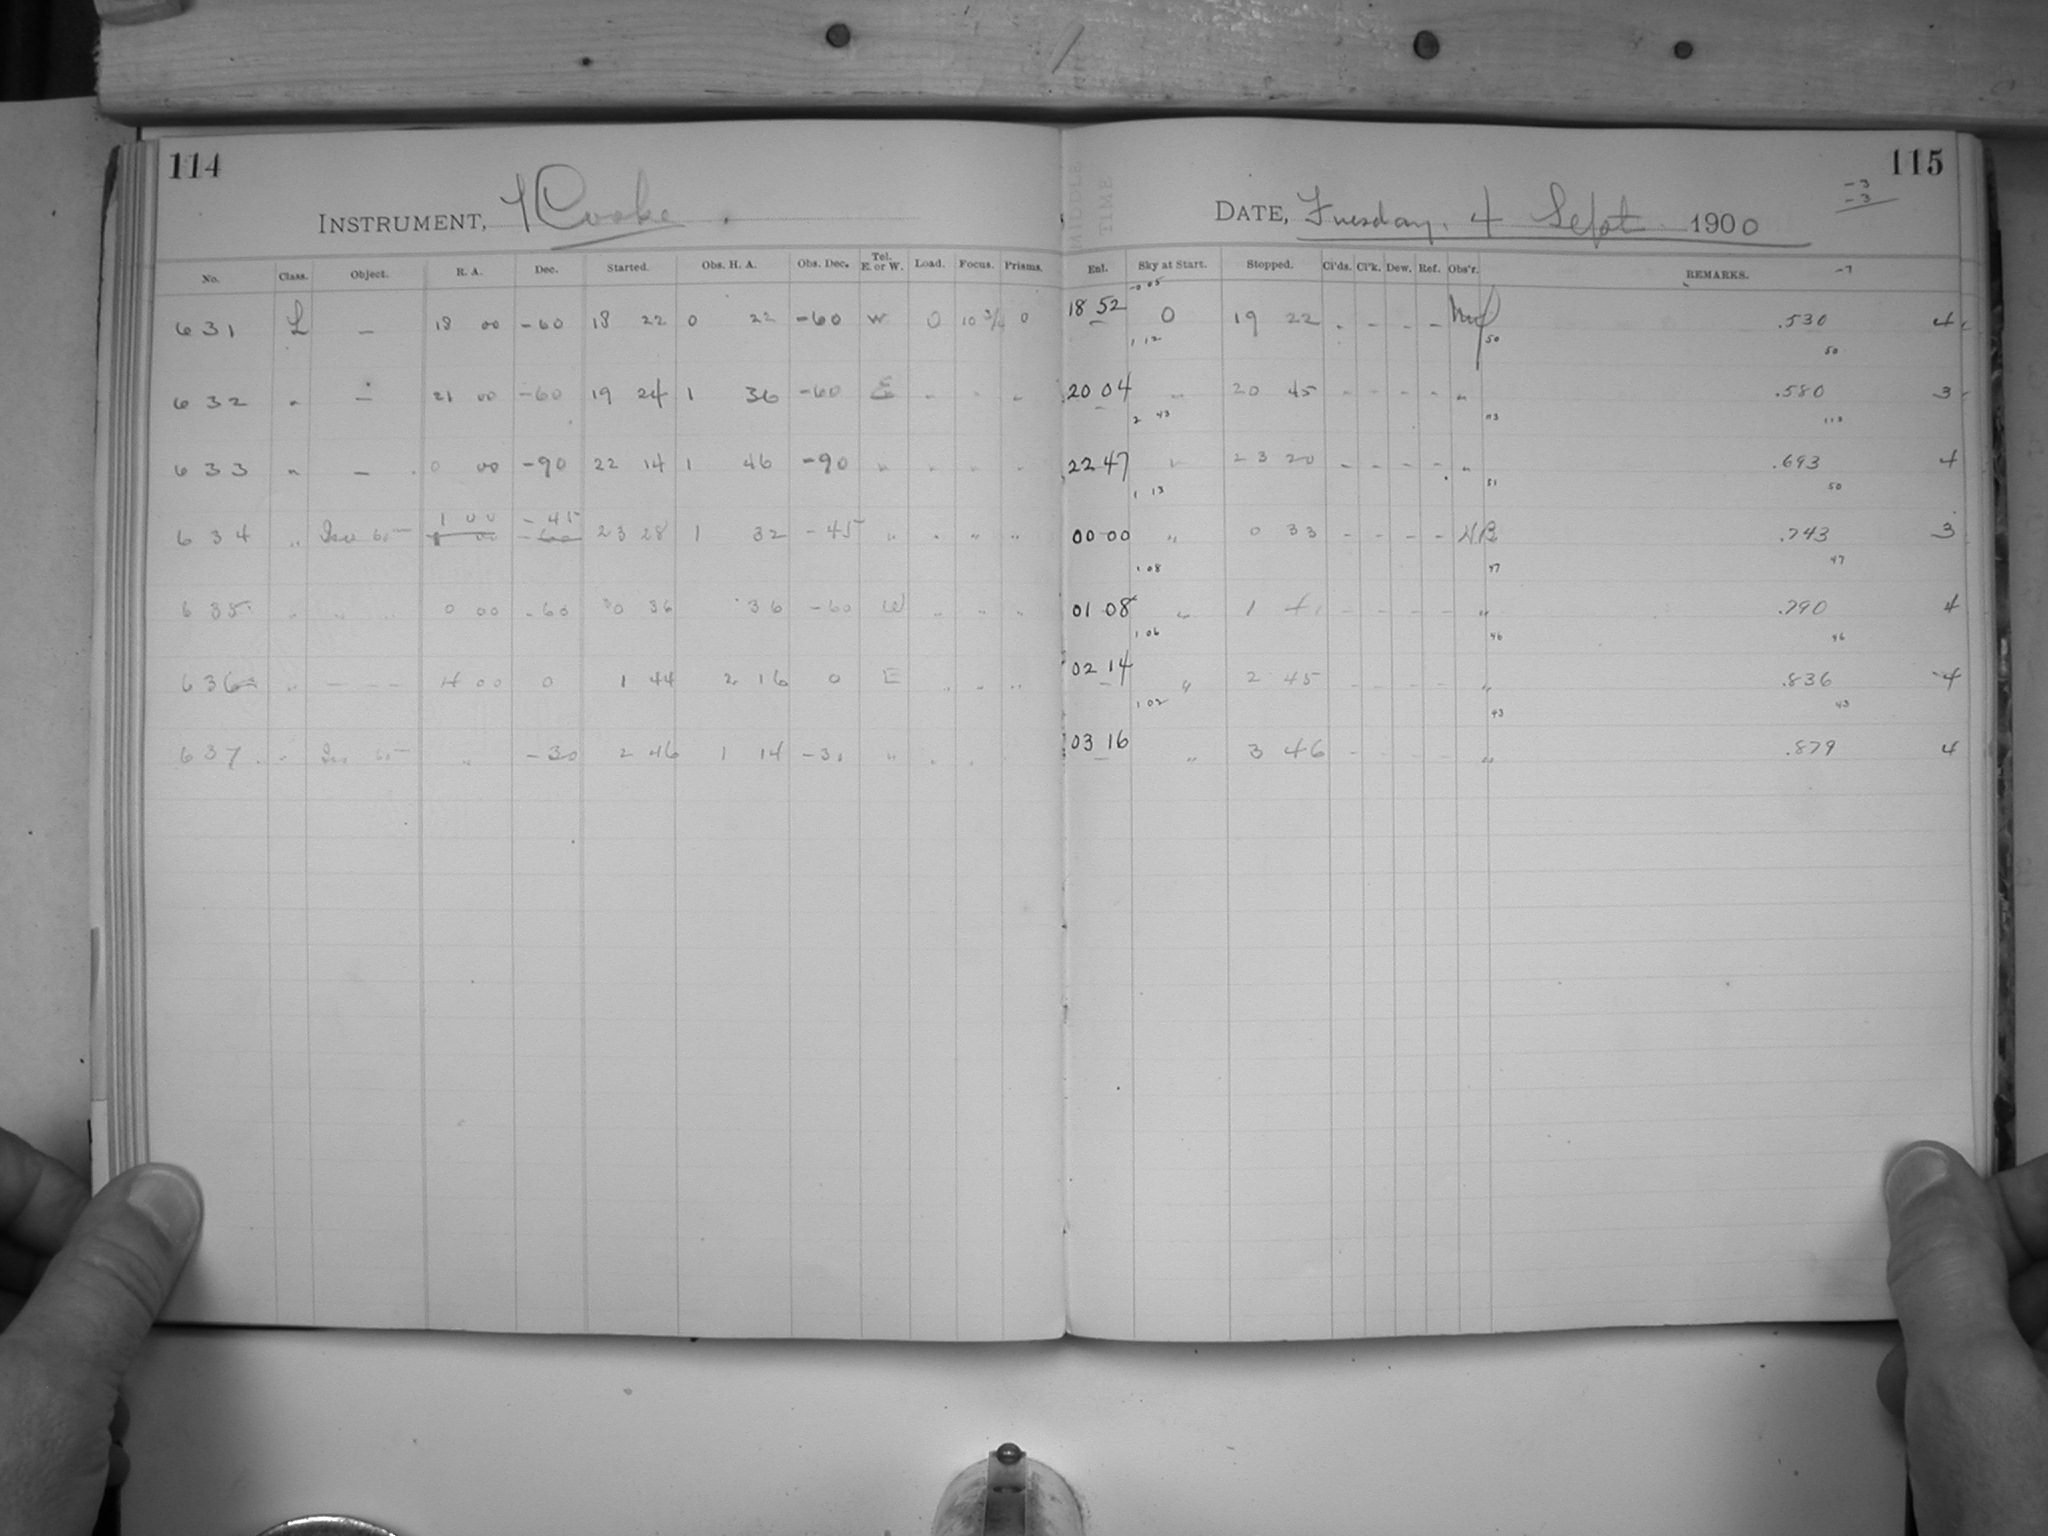 114
INSTRUMENT, 1 Cooke.
No. Class. Object. R. A. Dec. Started. Obs. H. A. Obs. Dec. Tel. E. or W. Load. Focus. Prisms.
631 L — 18 00 -60 18 22 0 22 -60 W 0 10 3/4 0
632 " — 21 00 -60 19 24 1 36 -60 E " " "
633 " — 0 00 -90 22 14 1 46 -90 " " " "
1 00 -45
634 " 60 23 28 1 32 -45 " " " "
635 " " 0 00 -60 0 36 36 -60 W " " "
636 " — 4 00 0 1 44 2 16 0 E " " "
637 " " -30 2 46 1 14 -30 " "
115
-3
-3
DATE, Tuesday. 4 Sept 1900
Enl. Sky at Start. Stopped. Cl'ds. Cl'k. Dew. Ref. Obs'r. REMARKS. -7
-0 05
18 52 0 19 22 - - - - .530 4
1 12 50 50
20 04 " 20 45 - - - - " .580 3
2 43 113 113
22 47 " 23 20 - - - - " .693 4
1 13 51 50
00 00 " 0 33 - - - - .743 3
1 08 47 47
01 08 " 1 - - - - " .790 4
1 06 46 46
02 14 " 2 45 - - - - " .836 4
1 02 43 43
03 16 " 3 46 - - - - " .879 4